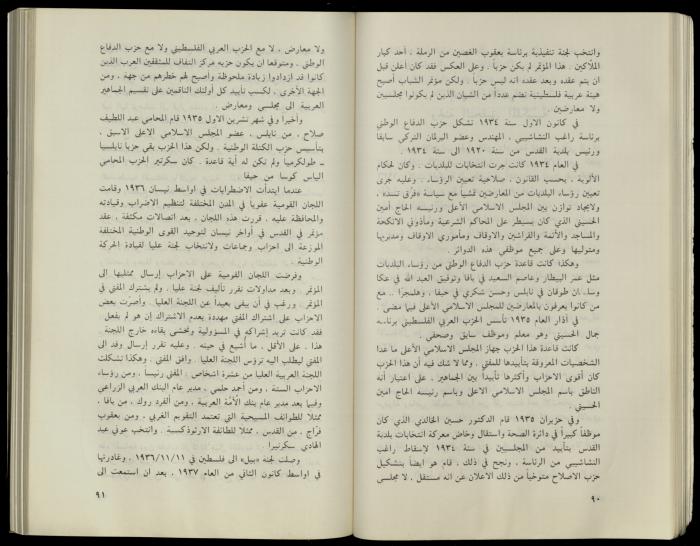 وانتخب لجنة تنفيذية برئاسة يعقوب الغصين من الرملة ، أحد كبار
الملاكين . هذا المؤتمر لم يكن حزباً . وعلى العكس فقد كان أعلن قبل
ان يتم عقده وبعد عقده انه ليس حزباً . ولكن مؤتمر الشباب أصبح
هيئة عربية فلسطينية تضم عدداً من الشبان الذين لم يكونوا مجلسيين
ولا معارضين .
في كانون الاول سنة ١٩٣٤ تشكل حزب الدفاع الوطني
برئاسة راغب النشاشيبي ، المهندس وعضو البرلمان التركي سابقا
ورئيس بلدية القدس من سنة ١٩٢٠ الى سنة ١٩٣٤ .
في العام ١٩٣٤ كانت جرت انتخابات للبلديات . وكان لحكام
الألوية ، بحسب القانون ، صلاحية تعيين الرؤساء . وعليه جرى
تعيين رؤساء البلديات من المعارضين تمشياً مع سياسة «فرّق تسد» ،
ولايجاد توازن بين المجلس الاسلامي الأعلى ورئيسه الحاج أمين
الحسيني الذي كان يسيطر على المحاكم الشرعية ومأذوني الانكحة
والمساجد والأئمة والفراشين والاوقاف ومأموري الاوقاف ومديريها
ومتوليها وعلى جميع موظفي هذه الدوائر .
وهكذا كانت قاعدة حزب الدفاع الوطني من رؤساء البلديات
مثل عمر البيطار وعاصم السعيد في يافا وتوفيق العبد الله في عكا
وسليمان طوقان في نابلس وحسن شكري في حيفا ، وهلمجرا .. مع
من كانوا يعرفون بالمعارضين للمجلس الاسلامي الأعلى فيما مضى .
في آذار العام ١٩٣٥ تأسس الحزب العربي الفلسطيني برئاسة
جمال الحسيني وهو معلم وموظف سابق وصحفي .
كانت قاعدة هذا الحزب جهاز المجلس الاسلامي الأعلى ما عدا
الشخصيات المعروفة بتأييدها للمفتي . ومما لا شك فيه أن هذا الحزب
كان أقوى الاحزاب وأكثرها تأييداً بين الجماهير ، على اعتبار أنه
الناطق باسم المجلس الاسلامي الأعلى وباسم رئيسه الحاج امين
الحسيني .
وفي حزيران ١٩٣٥ قام الدكتور حسين الخالدي الذي كان
موظفاً كبيراً في دائرة الصحة واستقال وخاض معركة انتخابات بلدية
القدس بتأييد من المجلسيين في سنة ١٩٣٤ لإسقاط راغب
النشاشيبي من الرئاسة ، ونجح في ذلك ، قام هو ايضاً بتشكيل
حزب الاصلاح متوخياً من ذلك الاعلان عن انه مستقل ، لا مجلسي
٩٠
ولا معارض ، لا مع الحزب العربي الفلسطيني ولا مع حزب الدفاع
الوطني ، ومتوقعا ان يكون حزبه مركز التفاف للمثقفين العرب الذين
كانوا قد ازدادوا زيادة ملحوظة وأصبح لهم خطرهم من جهة ، ومن
الجهة الأخرى ، لكسب تأييد كل أولئك الناقمين على تقسيم الجماهير
العربية الى مجلسي ومعارض .
وأخيراً وفي شهر تشرين الاول ١٩٣٥ قام المحامي عبد اللطيف
صلاح ، من نابلس ، عضو المجلس الاسلامي الاعلى الاسبق ،
بتأسيس حزب الكتلة الوطنية . ولكن هذا الحزب بقي حزبا نابلسيا
ـ طولكرميا ولم تكن له أية قاعدة . كان سكرتير الحزب المحامي
الياس كوسا من حيفا .
عندما ابتدأت الاضطرابات في اواسط نيسان ١٩٣٦ وقامت
اللجان القومية عفويا في المدن المختلفة لتنظيم الاضراب وقيادته
والمحافظة عليه ، قررت هذه اللجان ، بعد اتصالات مكثفة ، عقد
مؤتمر في القدس في أواخر نيسان لتوحيد القوى الوطنية المختلفة
الموزعة الى احزاب وجماعات ولانتخاب لجنة عليا لقيادة الحركة
الوطنية .
وفرضت اللجان القومية على الاحزاب إرسال ممثليها الى
المؤتمر . وبعد مداولات تقرر تأليف لجنة عليا . ولم يشترك المفتي في
المؤتمر . ورغب في أن يبقى بعيدا عن اللجنة العليا . وأصرت بعض
الاحزاب على اشتراك المفتي مهددة بعدم الاشتراك إن هو لم يفعل .
فقد كانت تريد إشراكه في المسؤولية وتخشى بقاءه خارج اللجنة .
هذا ، على الأقل ، ما أشيع في حينه . وعليه تقرر إرسال وفد الى
المفتي ليطلب اليه ترؤس اللجنة العليا . وافق المفتي . وهكذا تشكلت
اللجنة العربية العليا من عشرة اشخاص ؛ المفتي رئيسا ، ومن رؤساء
الاحزاب الستة ، ومن أحمد حلمي ، مدير عام البنك العربي الزراعي
وفيما بعد مدير عام بنك الأمة العربية ، ومن ألفرد روك ، من يافا ،
ممثلا للطوائف المسيحية التي تعتمد التقويم الغربي ، ومن يعقوب
فرّاج ، من القدس ، ممثلا للطائفة الارثوذكسية . وانتخب عوني عبد
الهادي سكرتيرا .
وصلت لجنة «بيل» الى فلسطين في ١٩٣٦/١١/١١ ، وغادرتها
في اواسط كانون الثاني من العام ١٩٣٧ ، بعد ان استمعت الى
٩١